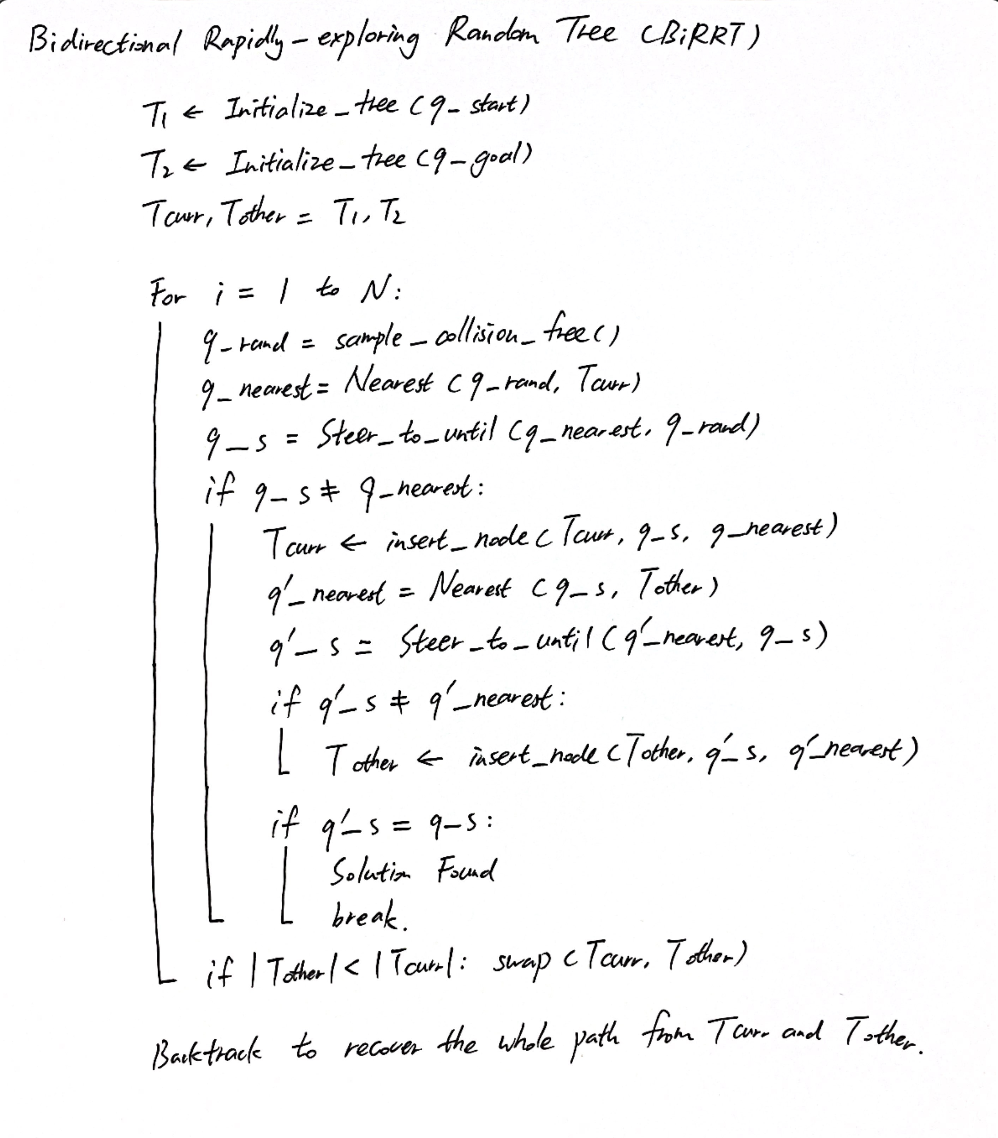 Bidirectional Rapidly-exploring Random Tree (BiRRT)
T₁ ← Initialize_tree (q_start)
T₂ ← Initialize_tree (q_goal)
Tcurr, Tother = T₁, T₂
For i = 1 to N:
q_rand = sample_collision_free()
q_nearest = Nearest (q_rand, Tcurr)
q_s = Steer_to_until (q_nearest, q_rand)
if q_s ≠ q_nearest:
Tcurr ← insert_node (Tcurr, q_s, q_nearest)
q'_nearest = Nearest (q_s, Tother)
q'_s = Steer_to_until (q'_nearest, q_s)
if q'_s ≠ q'_nearest:
Tother ← insert_node (Tother, q'_s, q'_nearest)
if q'_s = q_s:
Solution Found
break.
if |Tother| < |Tcurr|: swap (Tcurr, Tother)
Backtrack to recover the whole path from Tcurr and Tother.